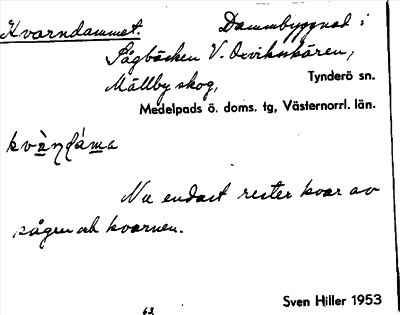 Kvarndammet. Dammbyggnad i
Sågbäcken V. Orviksskären,
Mällby skog, Tynderö sn.
Medelpads ö. doms. tg, Västernorrl. län.
kvàṇdáma
Nu endast rester kvar av
sågen och kvarnen.
Sven Hiller 1953
63.